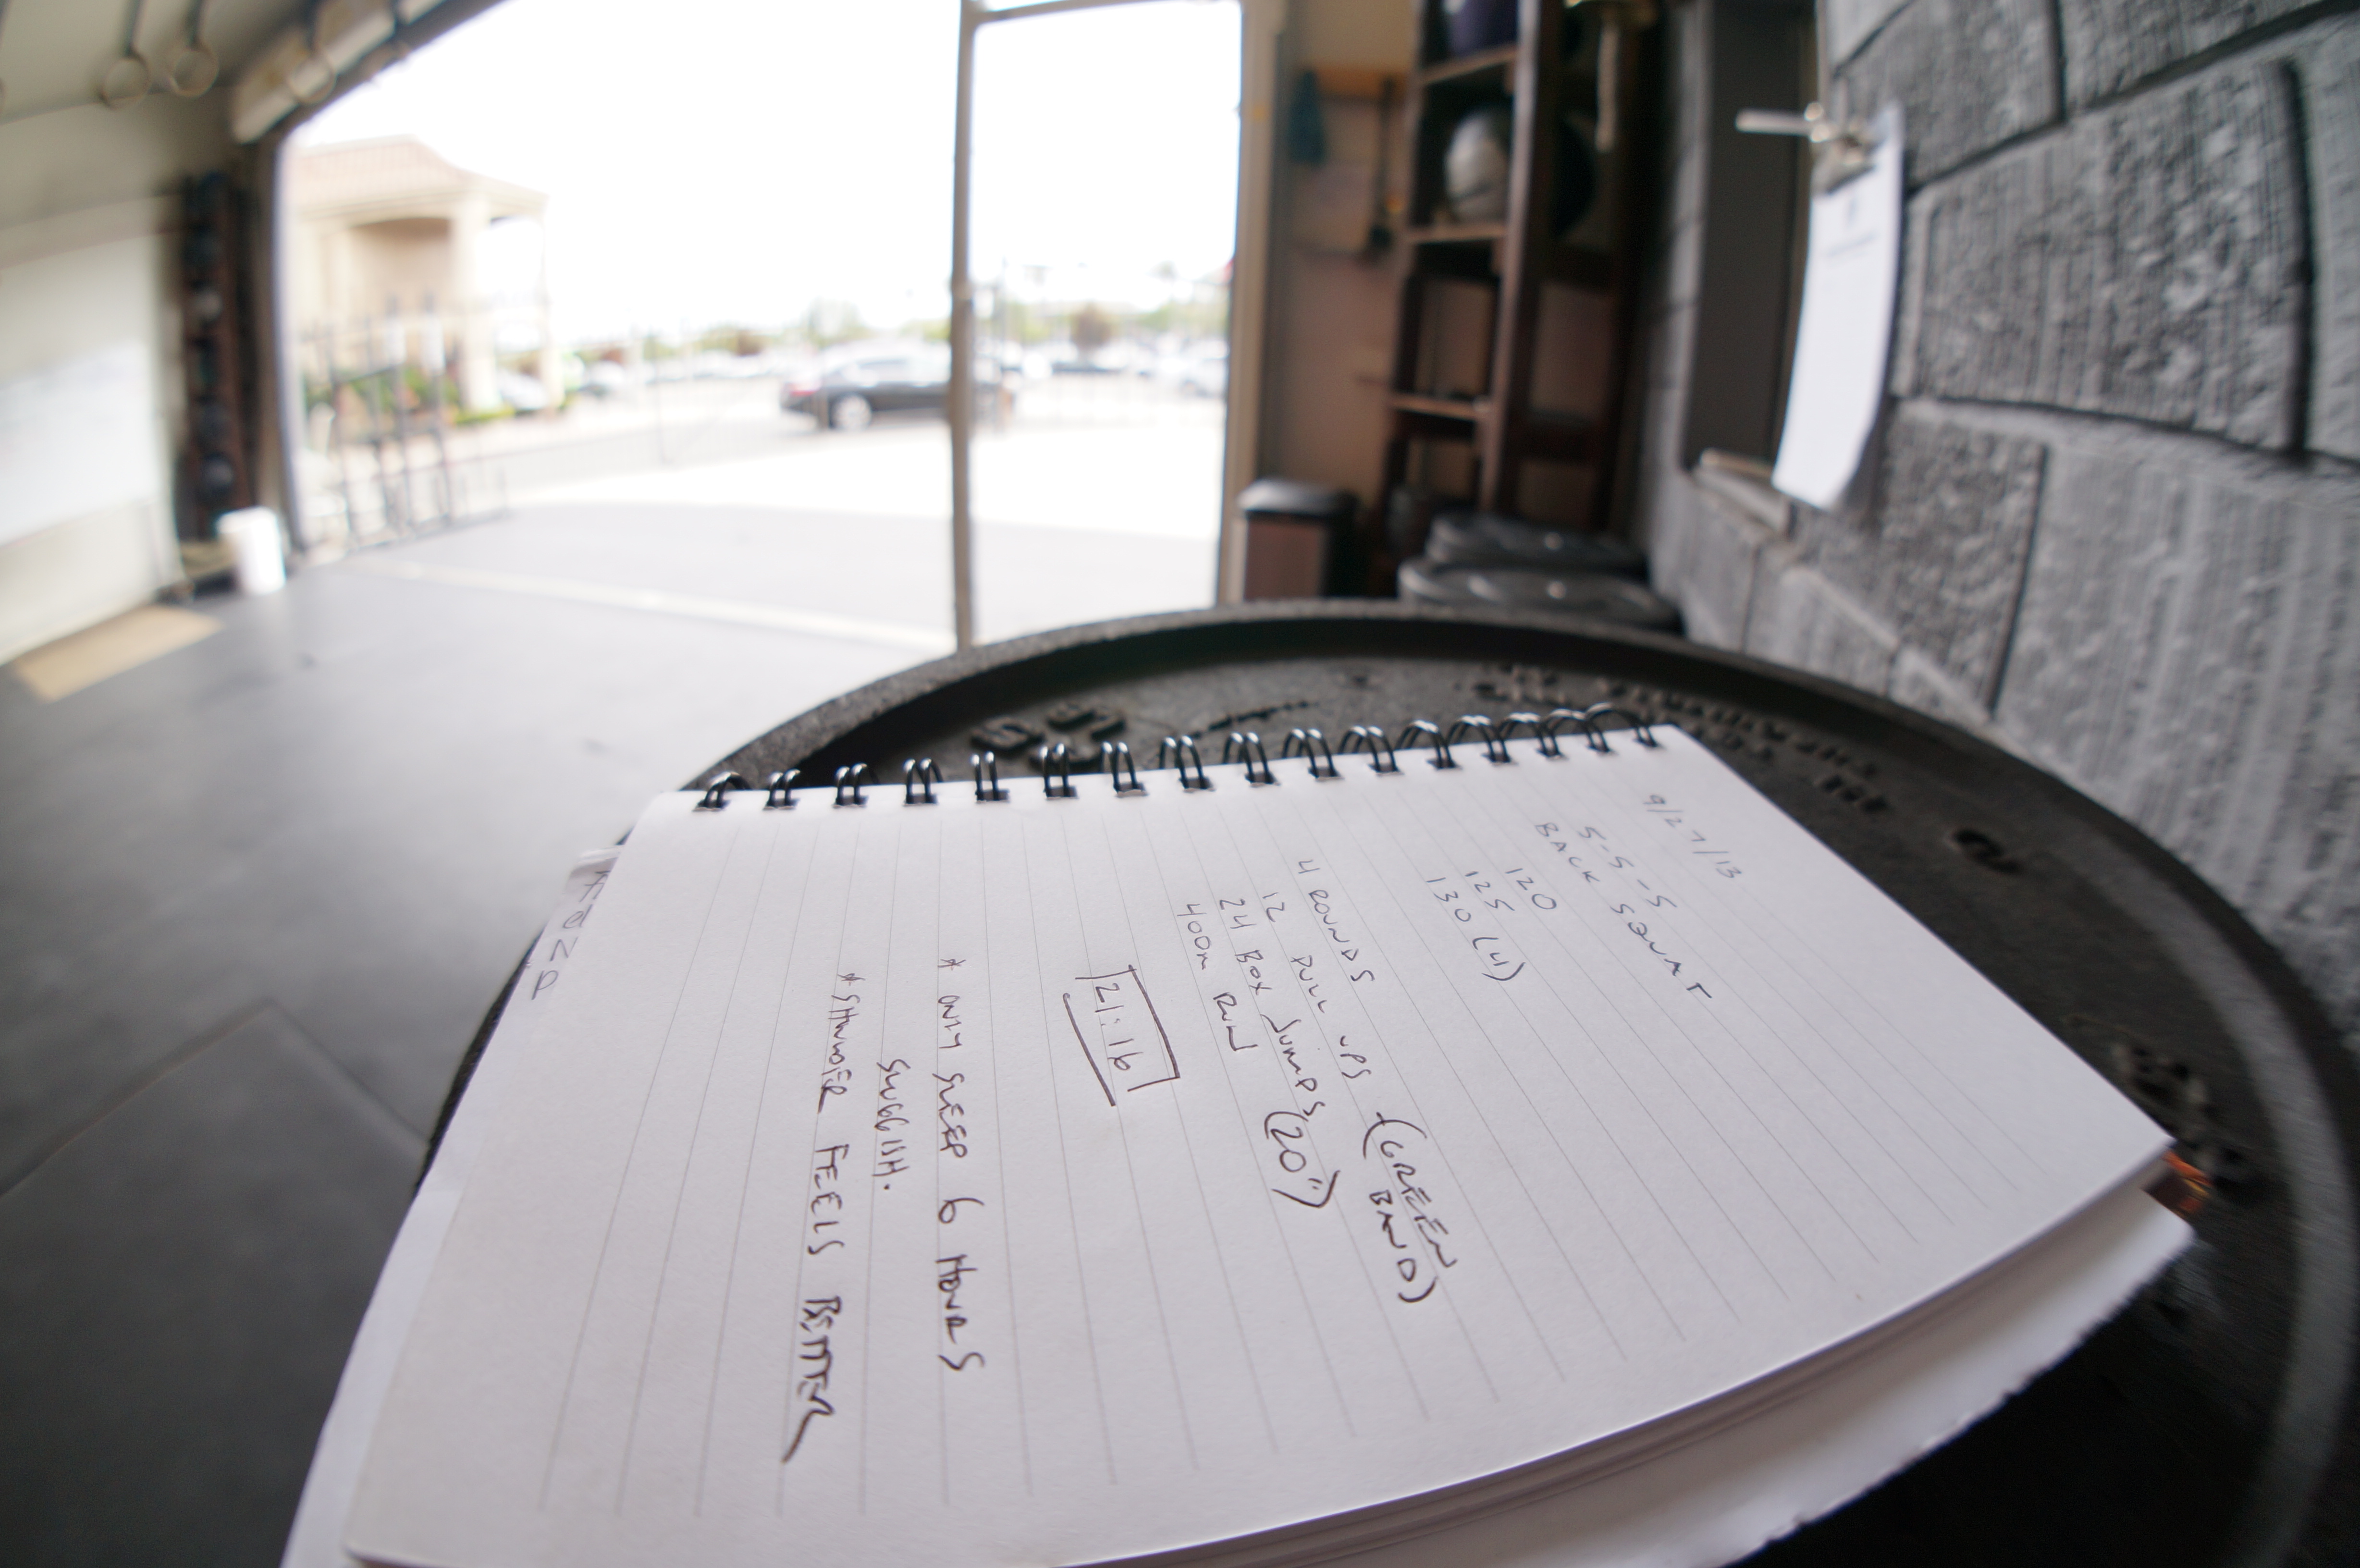 9/27/13
5-5-5
BACK SQUAT
120
125
130 (4)
4 ROUNDS
12 PULL UPS (GREEN BAND)
24 BOX JUMPS (20")
400m RUN
21:16
* ONLY SLEEP 6 HOURS
SLUGGISH.
* SHOULDER FEELS BETTER